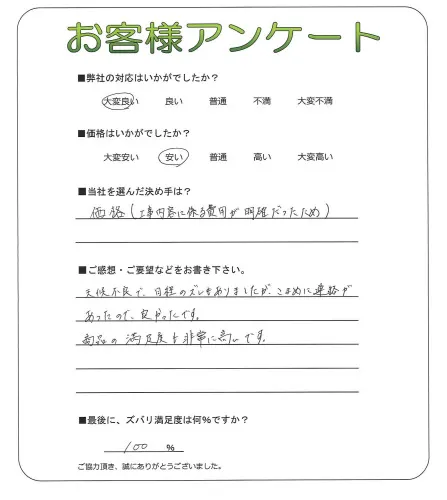 お客様アンケート
■弊社の対応はいかがでしたか？
大変良い 良い 普通 不満 大変不満
■価格はいかがでしたか？
大変安い 安い 普通 高い 大変高い
■当社を選んだ決め手は？
価格(工事内容に係る費用が明確だったため)
■ご感想・ご要望などをお書き下さい。
天候不良で、日程のズレもありましたが、こまめに連絡が
あったので、良かったです。
商品の満足度も非常に高いです。
■最後に、ズバリ満足度は何%ですか？
100 %
ご協力頂き、誠にありがとうございました。